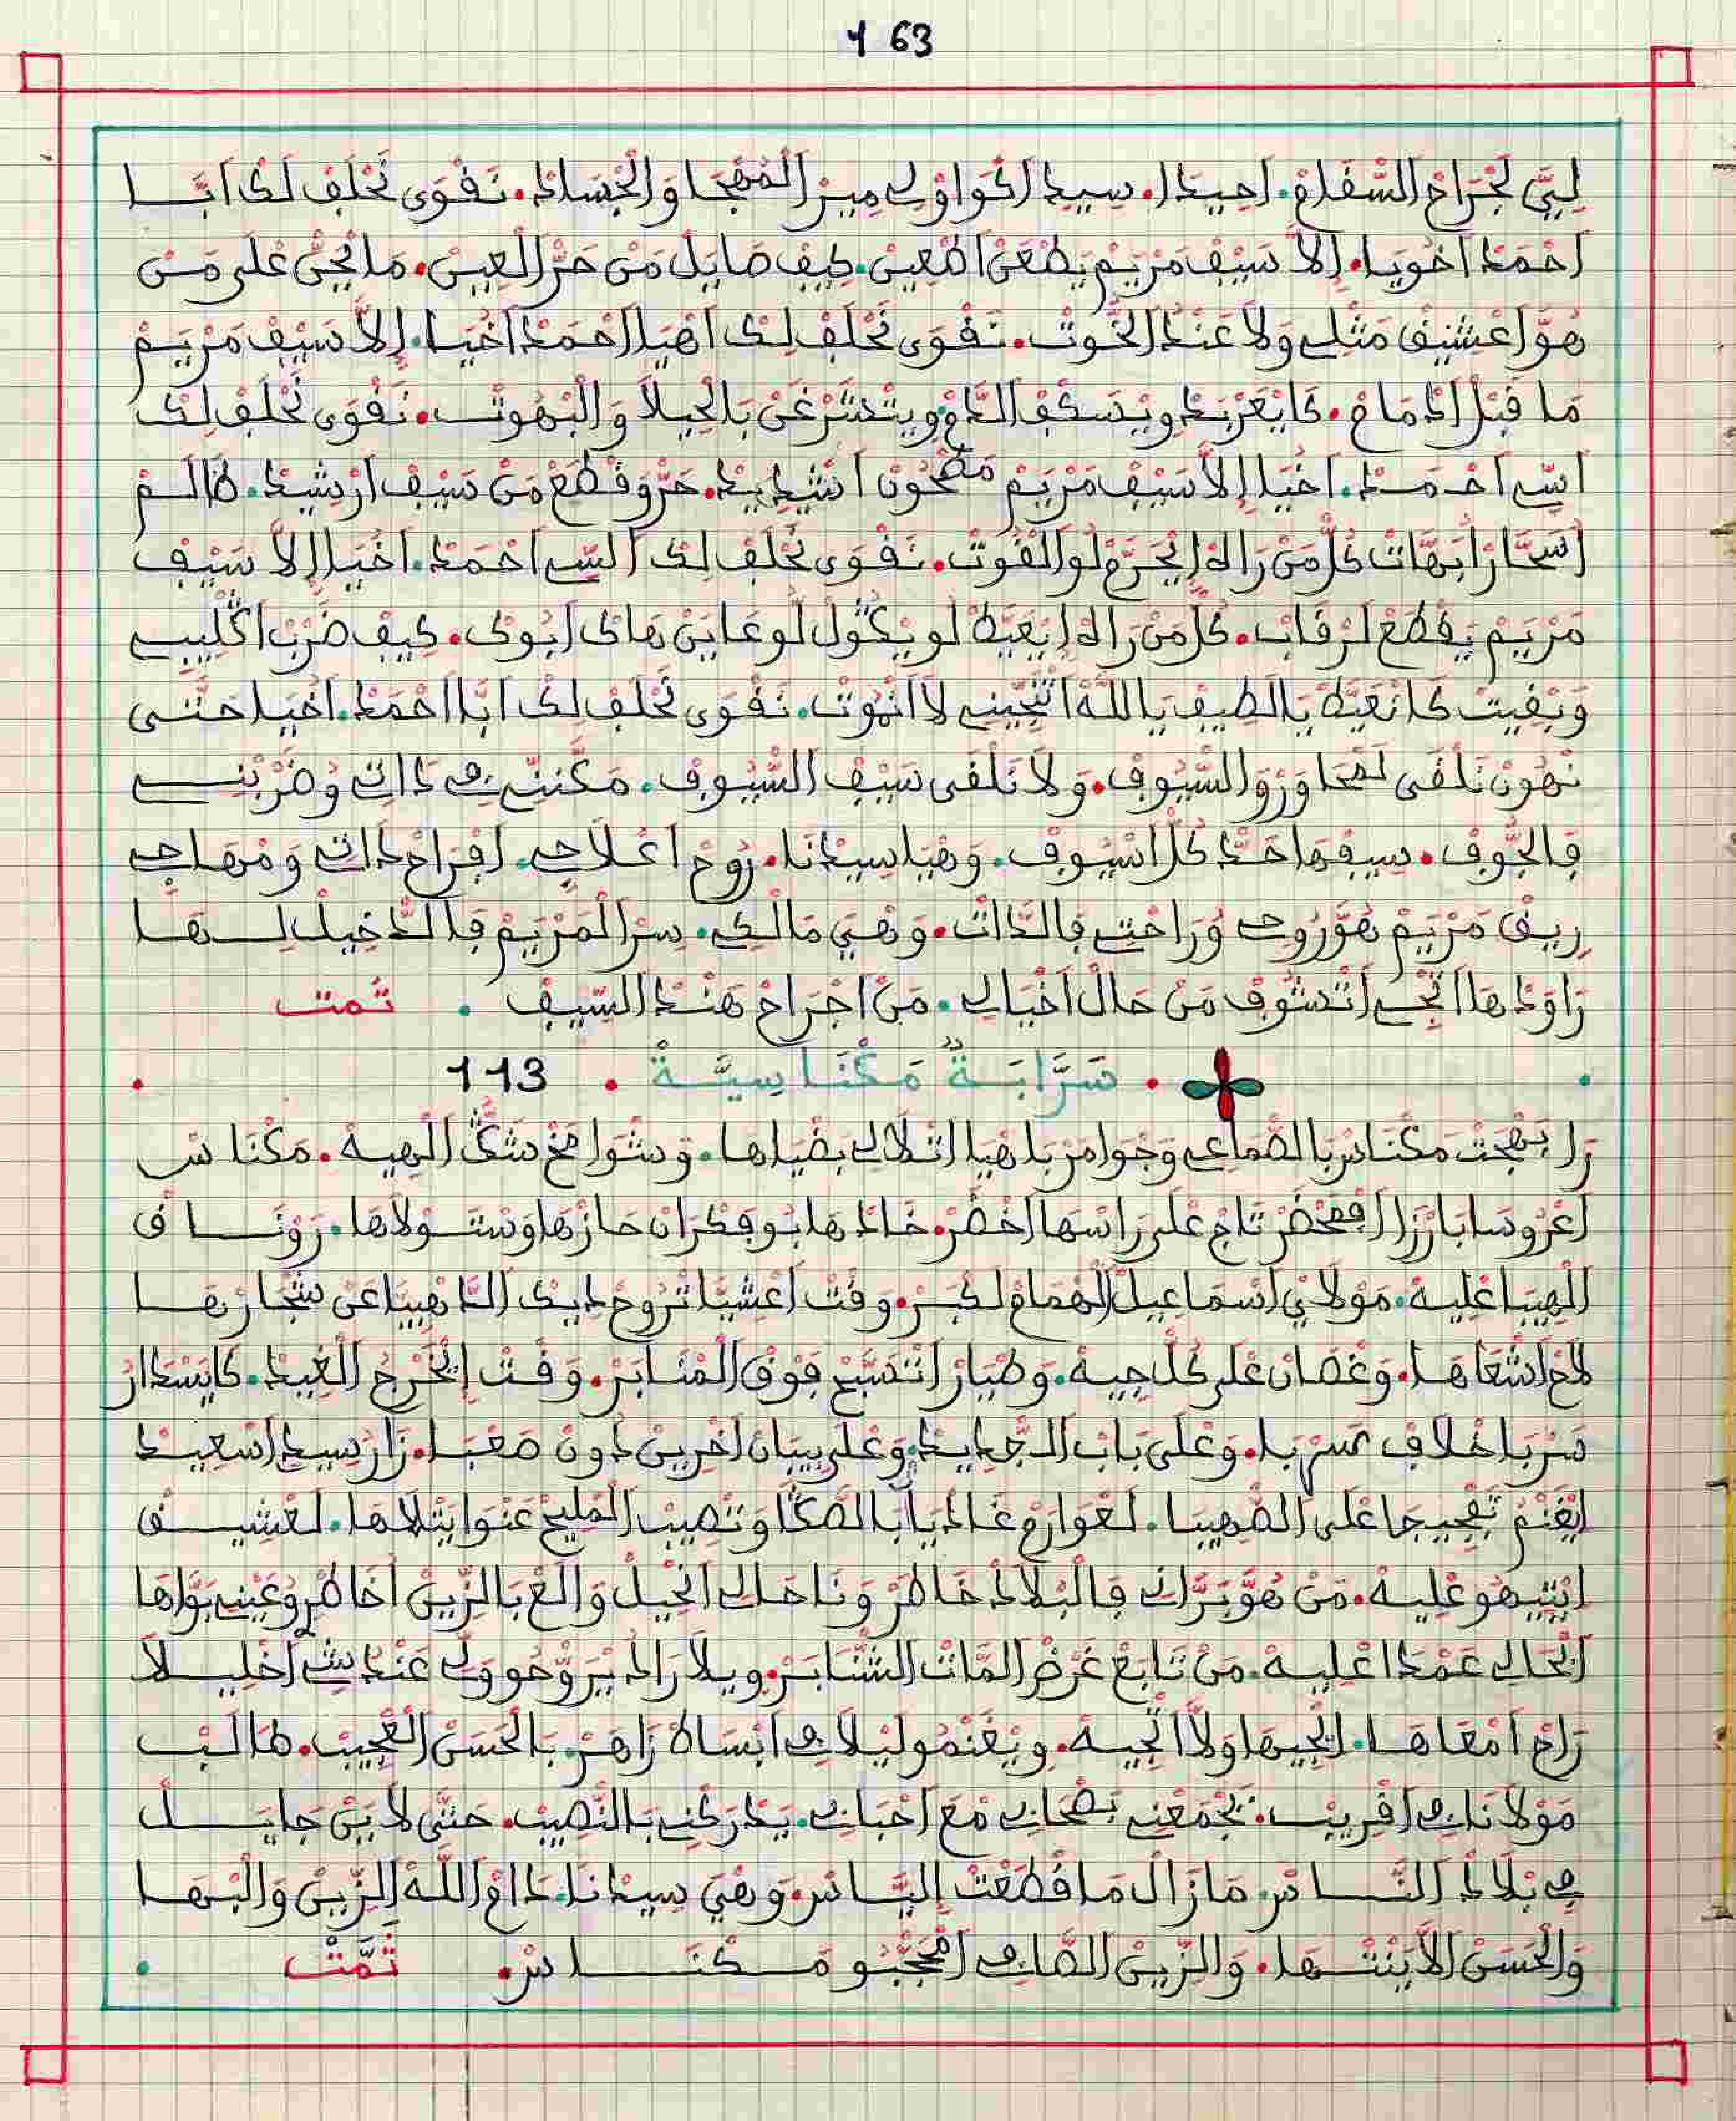 163
لِيَّ لَجْرَاحْ السّْقَامْ. احِيدَا. سِيدِ اكْوَاوْلِي مِيرْ الْمُهْجَا وَالْجْسَادْ. نَقْوَى نَحْلَفْ لَكْ أَبَّا
أَحْمَدْ أَخُويَا. إِلاَ سَيْفْ مَرْيَمْ يَطْعَنْ اطْعِينْ. كِيفْ صَايَلْ مَنْ حَرّْ الْعِينْ. مَايَخْفَى عْلَى مَنْ
هُوَّ اعْشِيقْ مَثْلِي وَلاَ عَنْدْ الْخُوتْ. نَقْوَى نَحْلَفْ لَكْ اهْيَا أَحْمَدْ أَخَيَّا. إِلاَّ سَيْفْ مَرْيَمْ
مَا قْبَلْ ادْمَامْ. كَايْعَرْبَدْ وِيْسَكَّفْ الدَّمْ وِيتْشَرْغَنْ بَالْحِيلاَ وَالْبْهُوتْ. نَقْوَى نَحْلَفْ لَكْ
أَسِّي أَحْمَدْ. أَخَيَّا إِلاَ سَيْفْ مَرْيَمْ مَصْحُونْ اشْدِيدْ. حَرُّو قْطَعْ مَنْ سَيْفْ ارْشِيدْ. ظَالَمْ
اسْحَّارْ ابْهَّاتْ كُلّْ مَنْ رَاهْ إِيْجَرَّعْ لُو الْقُوتْ. نَقْوَى نَحْلَفْ لَكْ السِّي أَحْمَدْ. أَخَيَّا إِلاَ سَيْفْ
مَرْيَمْ يَقْطَعْ لَرْقَابْ. كُلّْ مَنْ رَاهْ إِيْعَيَّطْ لُو يْكُولْ لُو عَايَنْ هَاكْ ابُوكْ. كِيفْ ضْرَبْ اكْلِيبِي
وَبْقِيتْ كَانْعَيَّطْ يَالَطِيفْ يَاللَّهْ اتْنَجِّينِي لاَ انْمُوتْ. نَقْوَى نَحْلَفْ لَكْ أَبَّا أَحْمَدْ. أَخَيَّا حَتَّى
نْهُونْ نَلْقَى لَمْحَاوْرْ وَالسّْيُوفْ. وَلاَ نَلْقَى سَيْفْ السّْيُوفْ. مَكَّنِّي فِي دَاتِي وُضْرَبْنِي
فَالْجُوفْ. سِيفْهَا حَدّْ كُلّْ اسْيُوفْ. وَهْيَا سِيدْنَا. رُوحْ اعْلاَجِي. افْرَاحْ دَاتِي وَمْهَاجِي
رِيقْ مَرْيَمْ هُوَّ رُوحِي وُرَاحْتِي فَالدَّاتْ. وَهْيَ مَالْكِي. سِرْ الْمَرْيَمْ فَالدّْخِيلْ لِهَا
رَاوَدْهَا اتْجِي اتْشُوفْ مَنْ حَالْ أَخْيَالِي. مَنْ اجْرَاحْ هَنْدْ السِّيفْ . تَمت
. سَرَّابَةٌ مَكْنَاسِيَّةْ . 113
رَا بَهْجَتْ مَكْنَاسْ بَالصّْمَاعِي وَجْوَامَرْ بَاهْيَا اتْلاَلِي بِضْيَاهَا. وَسْوَامَخْ شَكّْ الْهِيهْ. مَكْنَاسْ
اعْرُوسَا بَارْزَا افْمَحْضَرْ تَاجْ عْلَى رَاسْهَا اخْضَرْ. خَادْهَا بُوفَكْرَانْ حَازْهَا وَسْتَوْلاَهَا. رَوْنَاقْ
الْهِيبَا عْلِيهْ. مَوْلاَيْ اسْمَاعِيلْ الْهْمَامْ لَكْبَرْ. وَقْتْ اعْشِيَّا تْرُوحْ دِيكْ الدَّاهْبِيَّا عَنْ شْجَارْهَا
لاَحْ اشْعَاهَا. وَغْصَانْ عْلَى كُلْ جِيهْ. وَطْيَارْ اتْسَبّْحْ فَوْقْ الْمْنَابَرْ. وَقْتْ إِيْخَرْجُ الْغِيدْ. كَايَسْدَارْ
سَرْبَا خْلاَفْ سَرْبَا. وَعْلَى بَابْ الْجْدِيدْ. وَعْلَى بِيبَانْ اخْرِينْ دُونْ صَعْبَا. زَارْ سِيدِ اسْعِيدْ
إِيْغَنْمُ تَفْجِيجَا عْلَى الصّْهِيبَا. لَعْوَارَمْ غَادْيَا بَالصَّكَّا وَتْصِيبْ الْمْلِيحْ عَنْوَا يَتْلاَهَا. لَعْشِيقْ
إِيْتِيهُو عْلِيهْ. مَنْ هُوَّ بَرَّانِي فَالْبْلاَدْ خَاطَرْ وَنَا حَالِي انْحِيلْ وَالْعْ بَالزِّينْ أَخَاطْرُ وُعَيْنِي بَوَاهَا
الْحَالِي عَمْدَا عْلِيهْ. مَنْ تَابَعْ غَرْضْ الْمَّاتْ الشّْنَابَرْ. وِيلاَ رَادْ يْرَوّْحُو وَلِي عَنْدُشِ أَخْلِيلاَ
رَاحْ امْعَاهَا. ايْجِيهَا وَلاَّ اتْجِيهْ. وِيْغَنْمُو لِيلاَ فِي ابْسَاطْ زَاهَرْ. بَالْحُسْنْ الْعْجِيبْ. طَالَبْ
مَوْلاَنَا فِي اقْرِيبْ. يَجْمَعْنِي بَصْحَابِي مْعَ احْبَابِي. يَدْرَكْنِي بَالنّْصِيبْ. حَتَّى لاَيَنْ جَايَلْ
فِي بْلاَدْ النَّاسْ. مَازَالْ مَا قْطَعْتْ اِلْيَّاسْ. وَهْيَ سِيدْنَا. دَامْ اللَّهْ الزِّينْ وَالْبْهَا
وَالْحُسْنْ الاَيَنْتْهَا. وَالزِّينْ الصَّافِي افْجَنْبُو مَكْنَاسْ. تَمَّتْ .